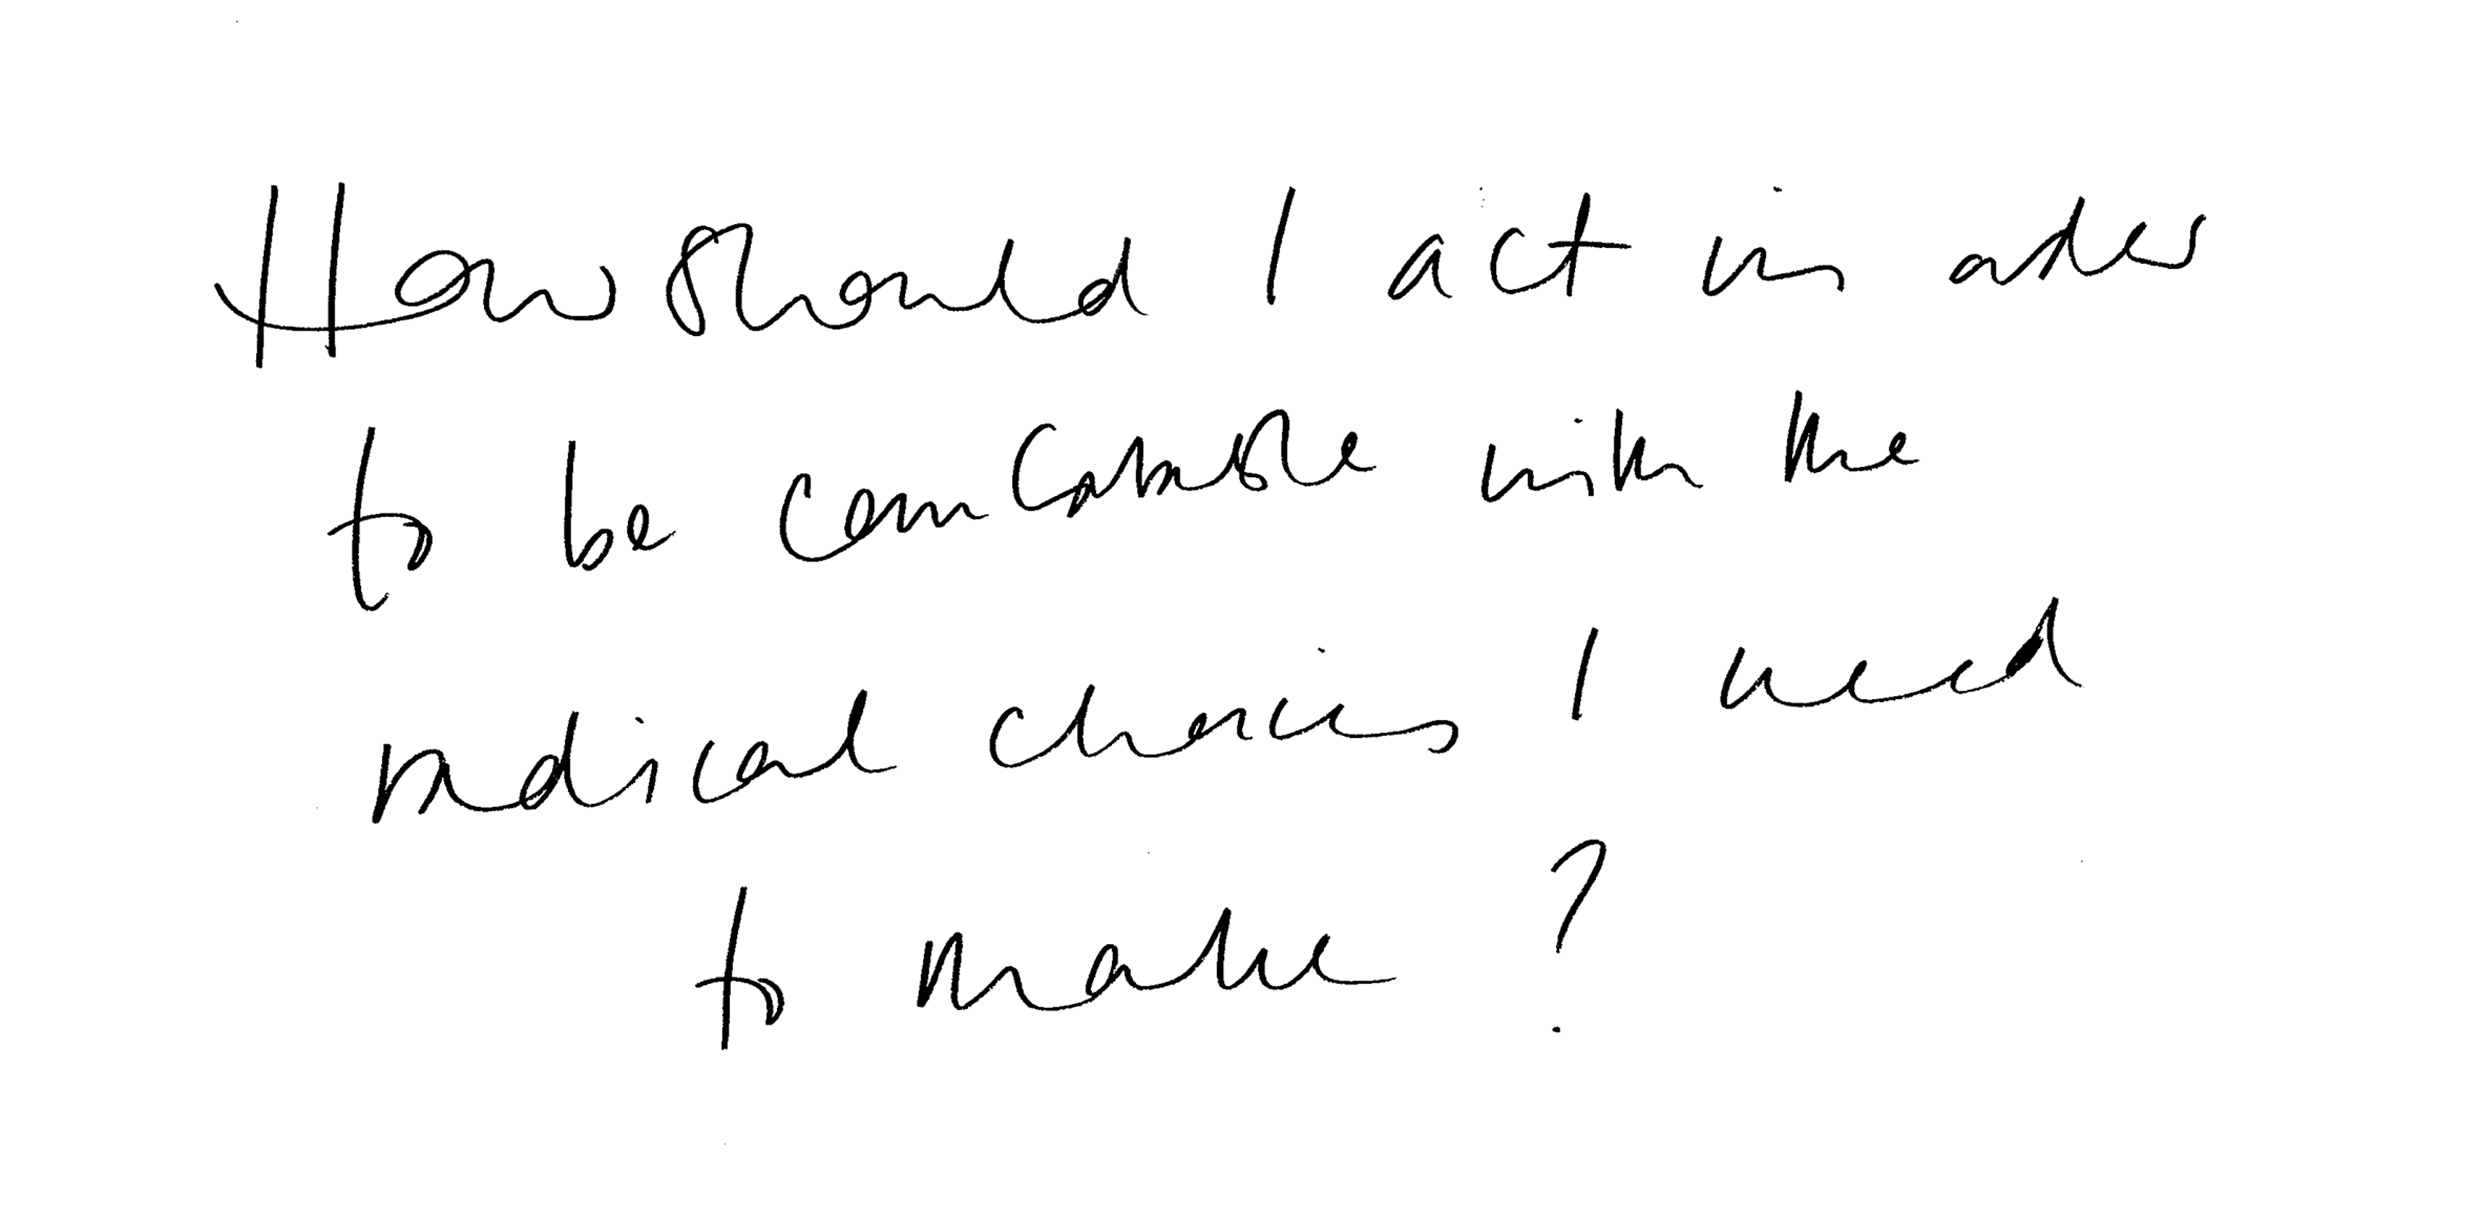 How should I act in order
to be comfortable with the
radical choices I need
to make?